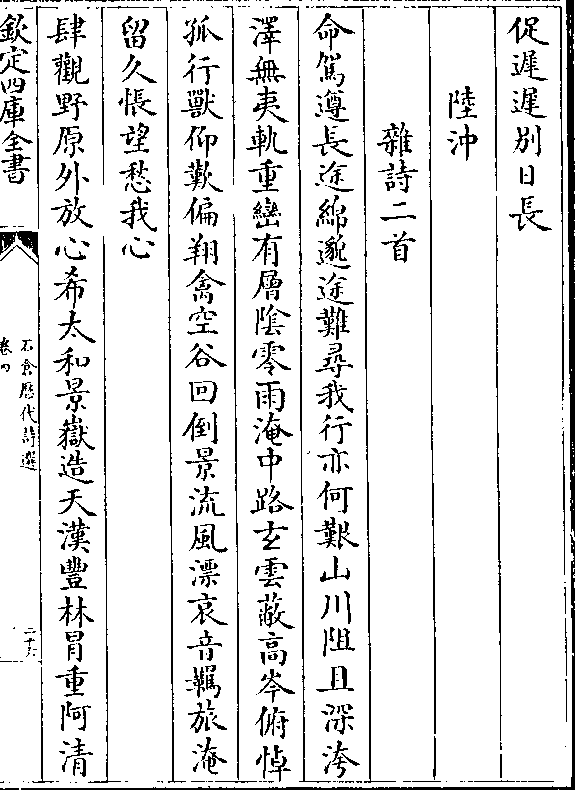 促遲遲別日長
陸沖
雜詩二首
命駕遵長途綿邈途難尋我行亦何艱山川阻且深洿
澤無夷軌重巒有層陰零雨淹中路玄雲蔽高岑俯悼
孤行獸仰歎偏翔禽空谷回倒景流風漂哀音羈旅淹
留久悵望愁我心
肆觀野原外放心希太和景嶽造天漢豐林冐重阿清
欽定四庫全書
石倉歷代詩選
卷四
二十六